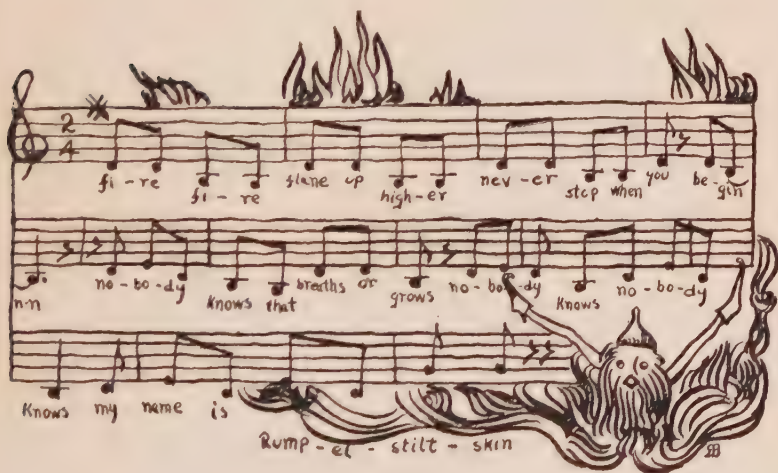 2
4
fi-re fi-re flane up high-er nev-er step when you be-gin
n-n no-bo-dy knows that breaths or grows no-bo-dy knows no-bo-dy
knows my name is
Rump-el-stilt-skin